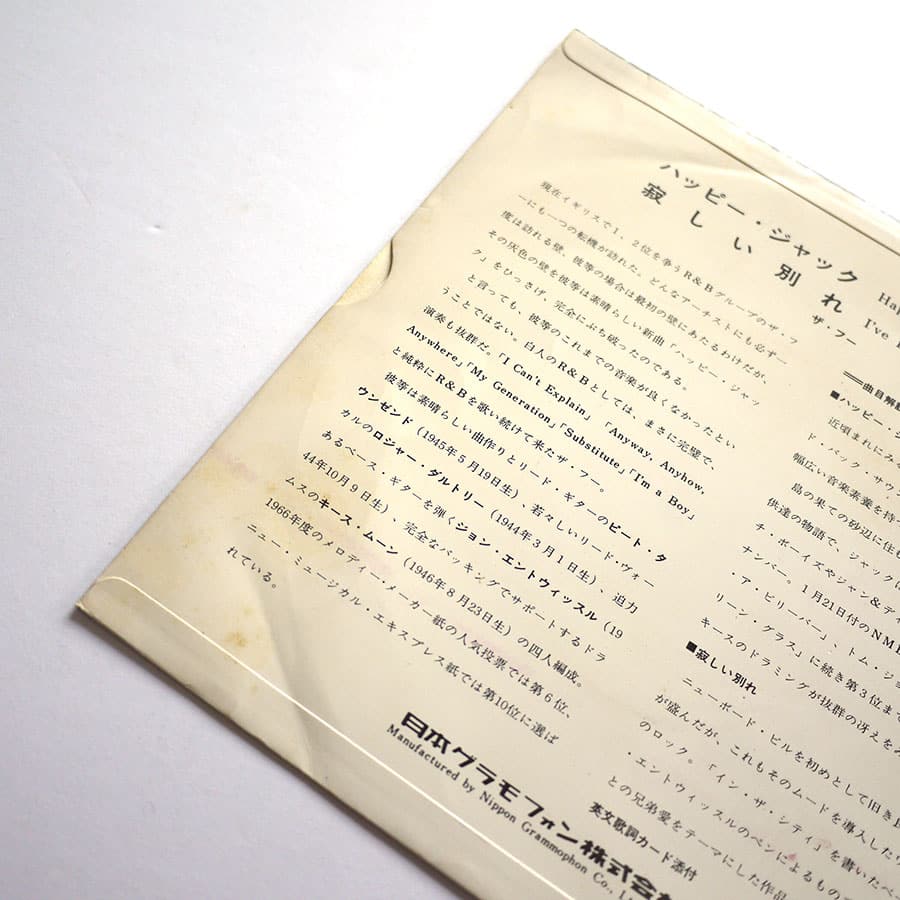 ハッピー・ジャック
Hap
寂しい別れ
I've
ザ・フー
現在イギリスで1，2位を争うR&Bグループのザ・フ
ーにも一つの転機が訪れた。どんなアーチストにも必ず一
度は訪れる壁、彼等の場合は最初の壁にあたるわけだが、
その灰色の壁を彼等は素晴らしい新曲「ハッピー・ジャッ
ク」をひっさげ、完全にぶち破ったのである。
と言っても、彼等のこれまでの音楽が良くなかったとい
うことではない。白人のR&Bとしては、まさに完璧で、
演奏も抜群だ。「I Can't Explain」「Anyway, Anyhow,
Anywhere」「My Generation」「Substitute」「I'm a Boy」
と純粋にR&Bを歌い続けて来たザ・フー。
彼等は素晴らしい曲作りとリード・ギターのピート・タ
ウンゼンド（1945年5月19日生）、若々しいリード・ヴォー
カルのロジャー・ダルトリー（1944年3月1日生）、迫力
あるベース・ギターを弾くジョン・エントウィッスル（19
44年10月9日生）、完全なバッキングでサポートするドラ
ムスのキース・ムーン（1946年8月23日生）の四人編成。
1966年度のメロディー・メーカー紙の人気投票では第6位、
ニュー・ミュージカル・エキスプレス紙では第10位に選ば
れている。
曲目解
■ハッピー・ジ
近頃まれにみる
ド・バック・サウン
幅広い音楽素養を持っ
島の果ての砂辺に住む
供達の物語で、ジャックは
チ・ボーイズやジャン&デ
ナンバー。1月21日付のNME
・ア・ビリーバー」、トム・ジョ
リーン・グラス」に続き第3位まで
キースのドラミングが抜群の冴えをみ
■寂しい別れ
ニューボード・ビルを初めとして旧き良
が盛んだが、これもそのムードを導入した
のロック。「イン・ザ・シティ」を書いたベ
・エントウィッスルのペンによるもので
との兄弟愛をテーマにした作品
英文歌詞カード添付
日本グラモフォン株式会
Manufactured by Nippon Grammophon Co., L